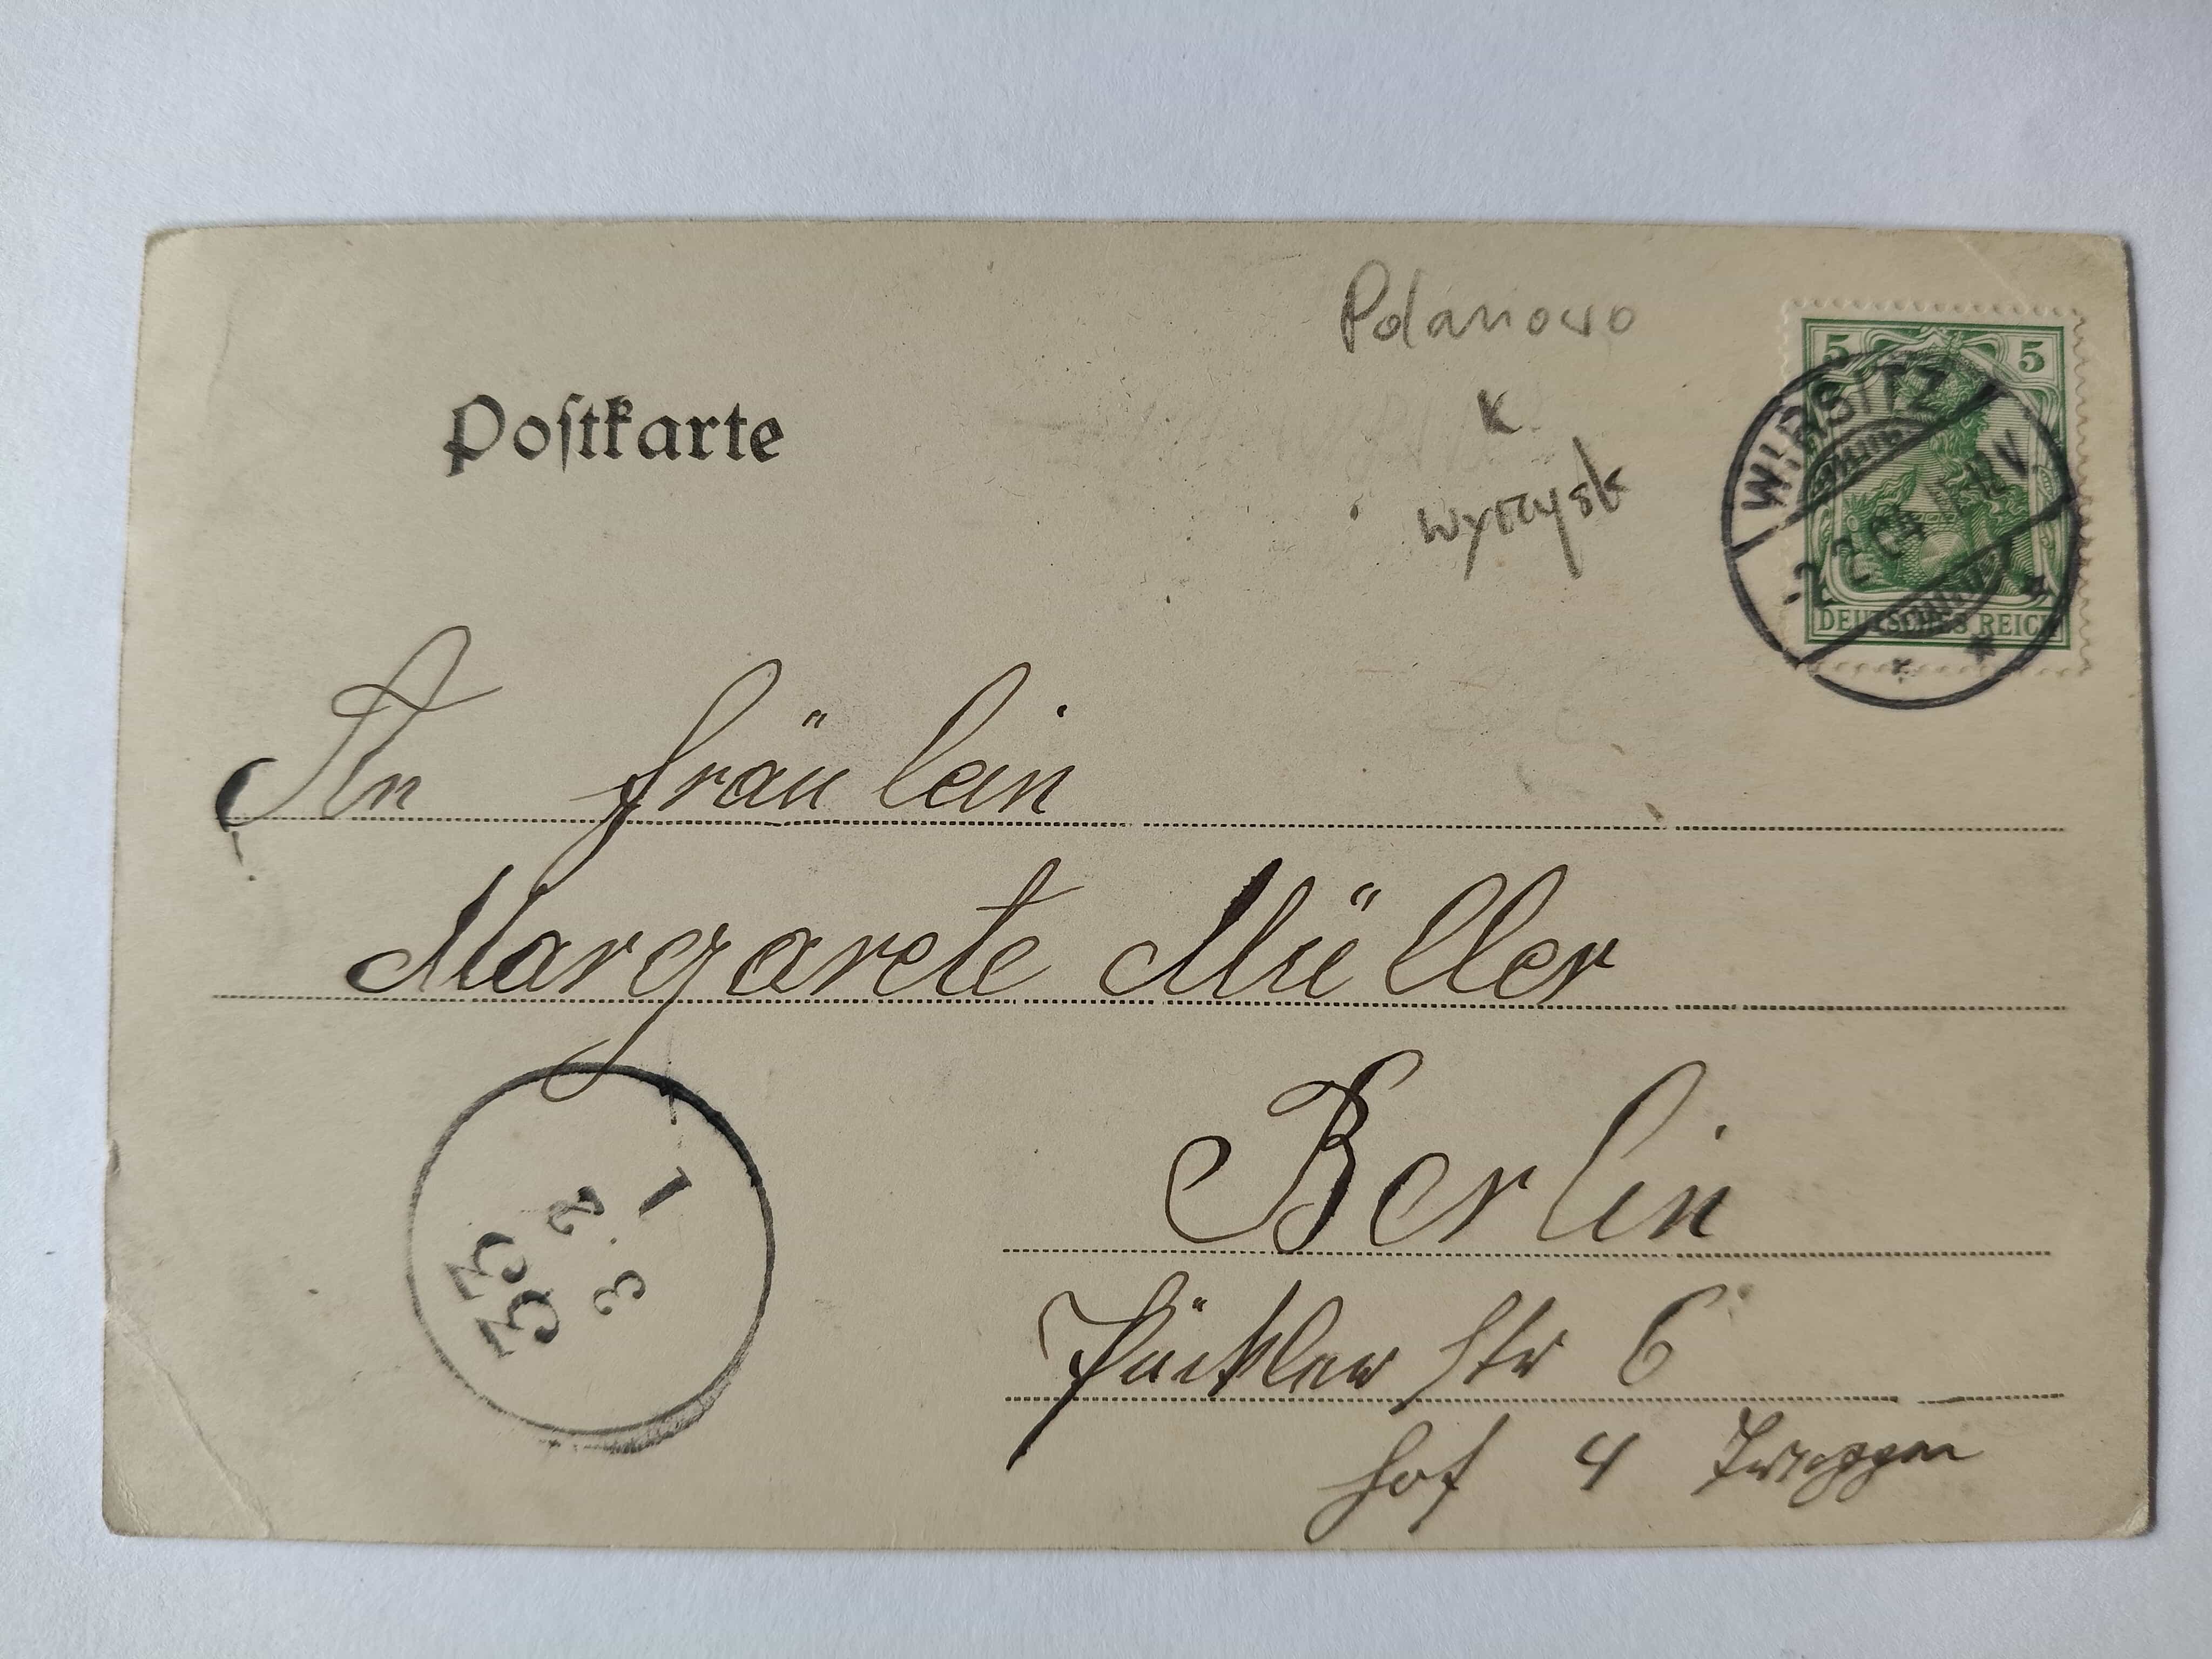 Polanowo
k
Wyrzysk
5 5
WIRSITZ
2 04
V.
DEUTSCHES REICH
Postkarte
An Fräulein
Margarete Müller
Berlin
Pückler Str 6
Hof 4 Treppen
33
2
3
1